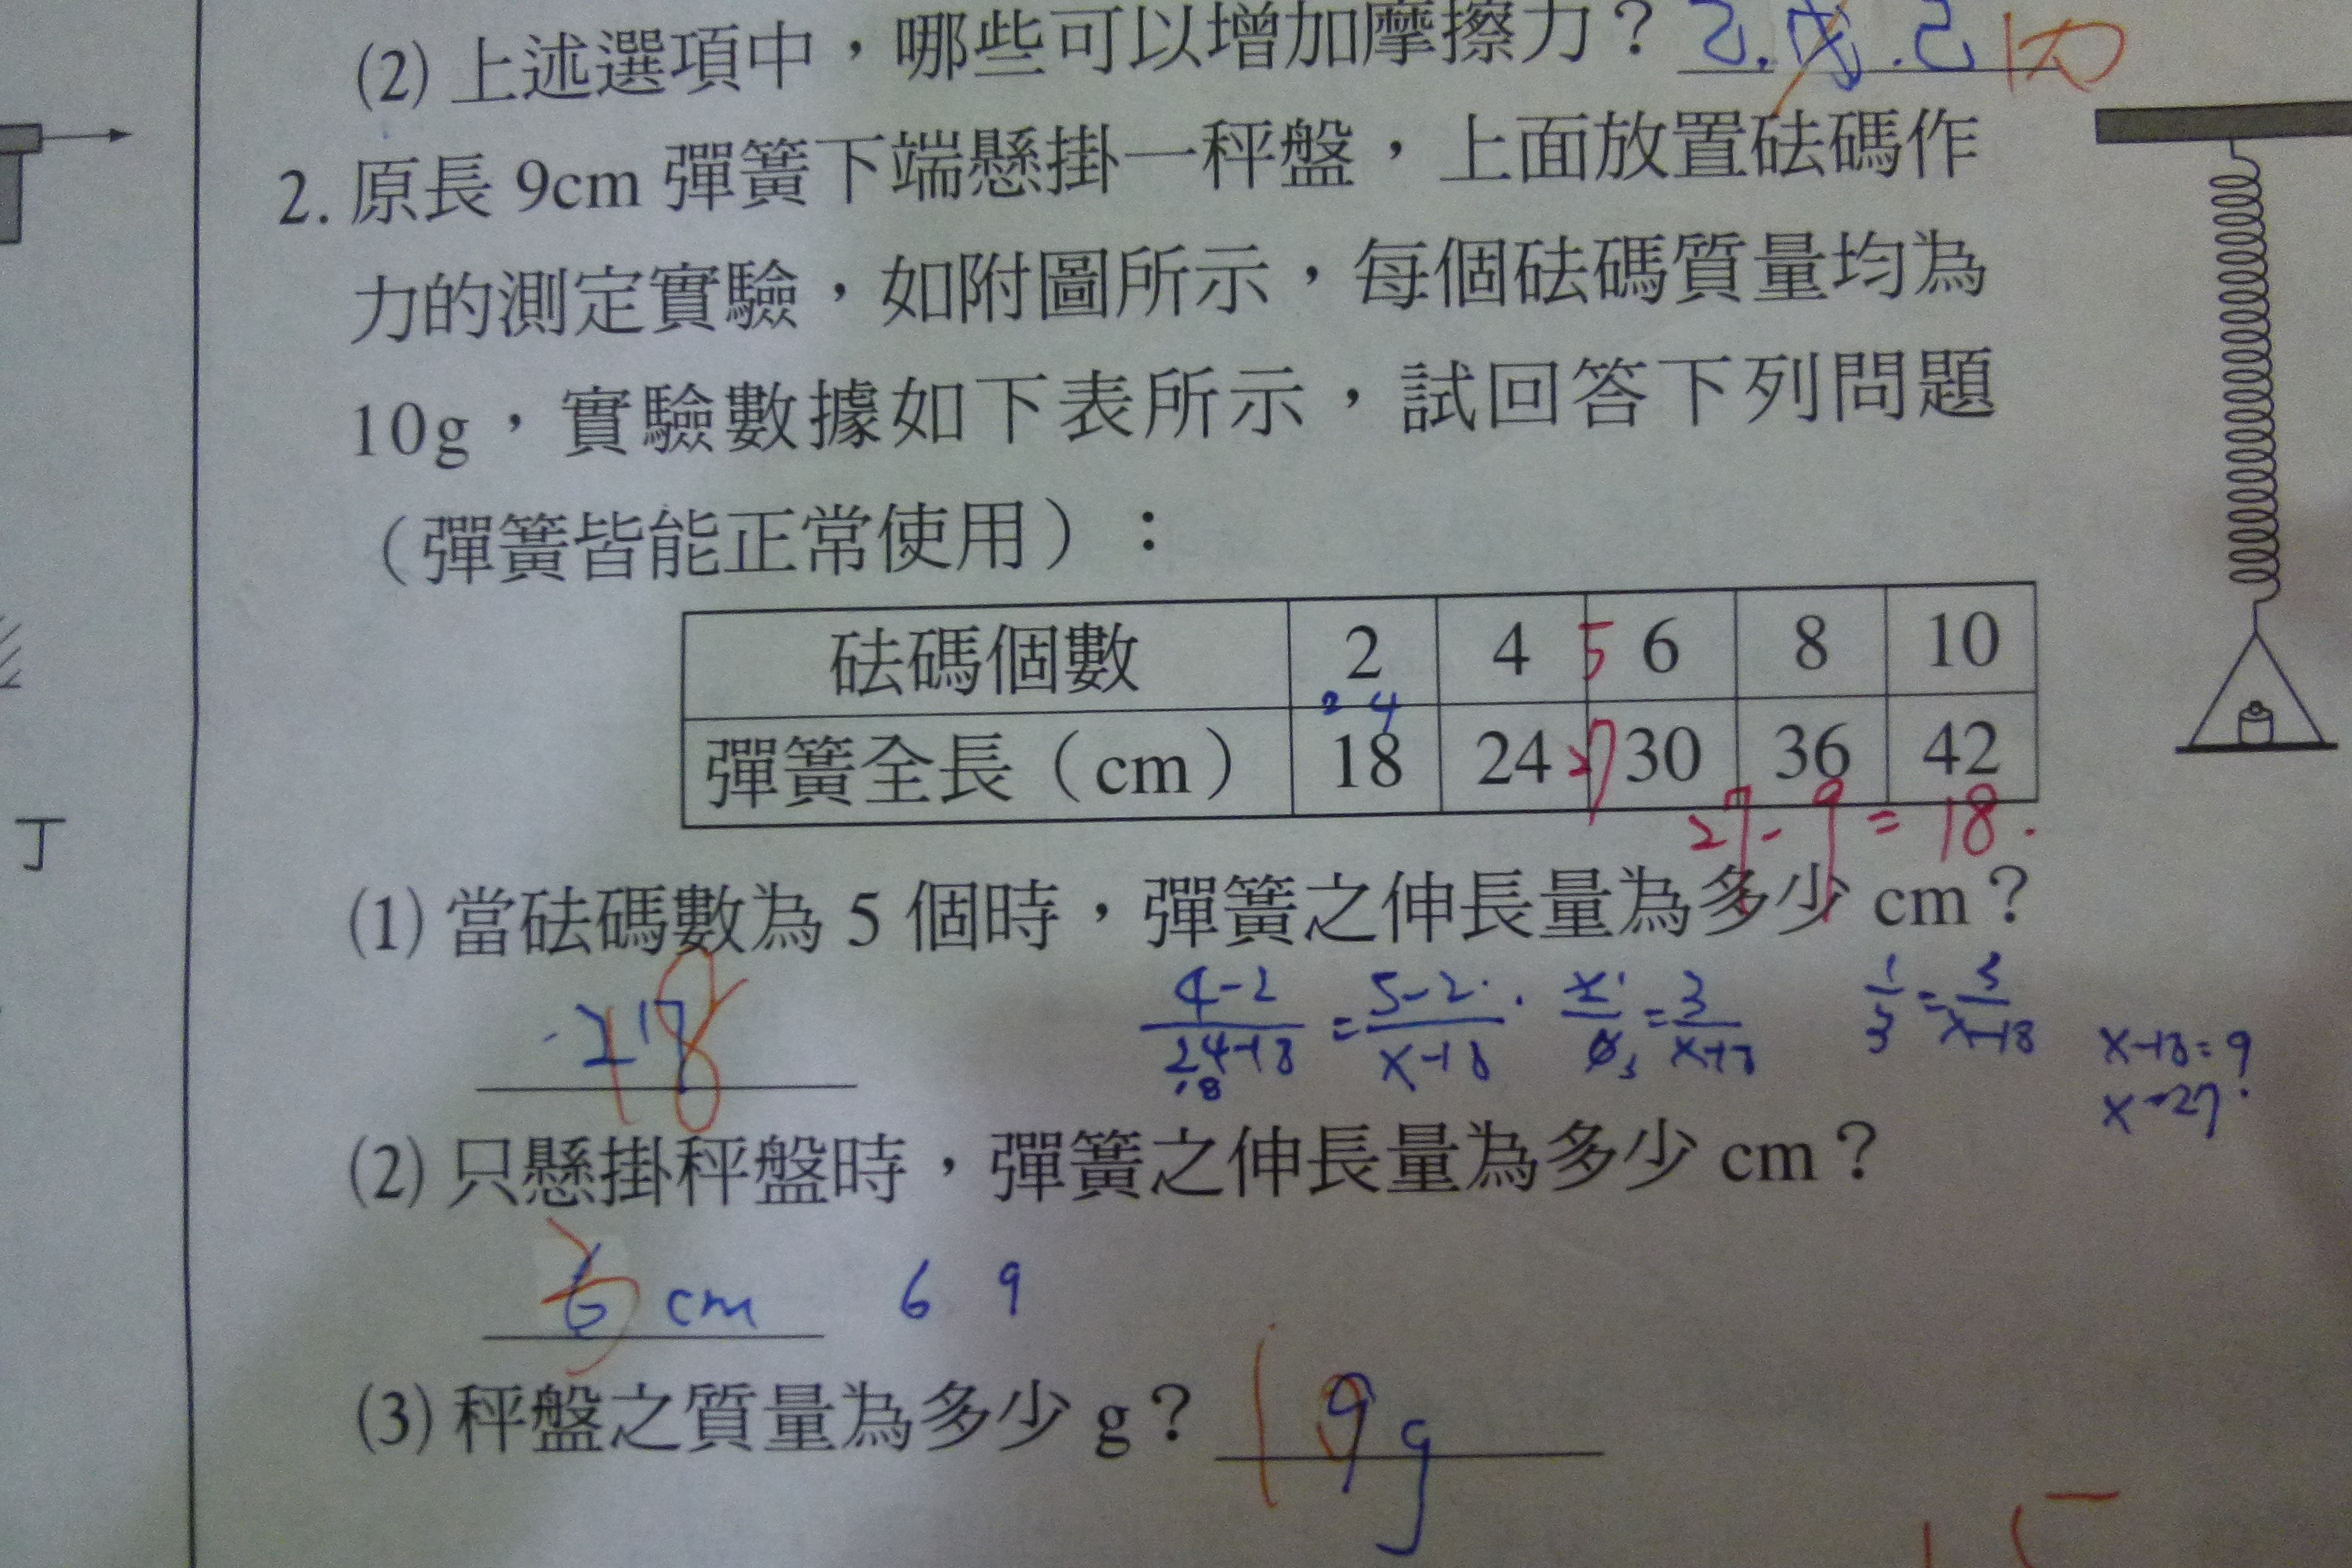 (2) 上述選項中，哪些可以增加摩擦力？
2. 原長 9cm 彈簧下端懸掛一秤盤，上面放置砝碼作
力的測定實驗，如附圖所示，每個砝碼質量均為
10g，實驗數據如下表所示，試回答下列問題
（彈簧皆能正常使用）：
砝碼個數 2 4 5 6 8 10
2 4
彈簧全長（cm） 18 24 27 30 36 42
27-9=18.
丁
(1) 當砝碼數為 5 個時，彈簧之伸長量為多少 cm？
4-2 / 24-18 = 5-2 / x-18
1/3 = 3 / x-18
x-18=9
x=27
18
(2) 只懸掛秤盤時，彈簧之伸長量為多少 cm？
cm 6 9
(3) 秤盤之質量為多少 g？ g